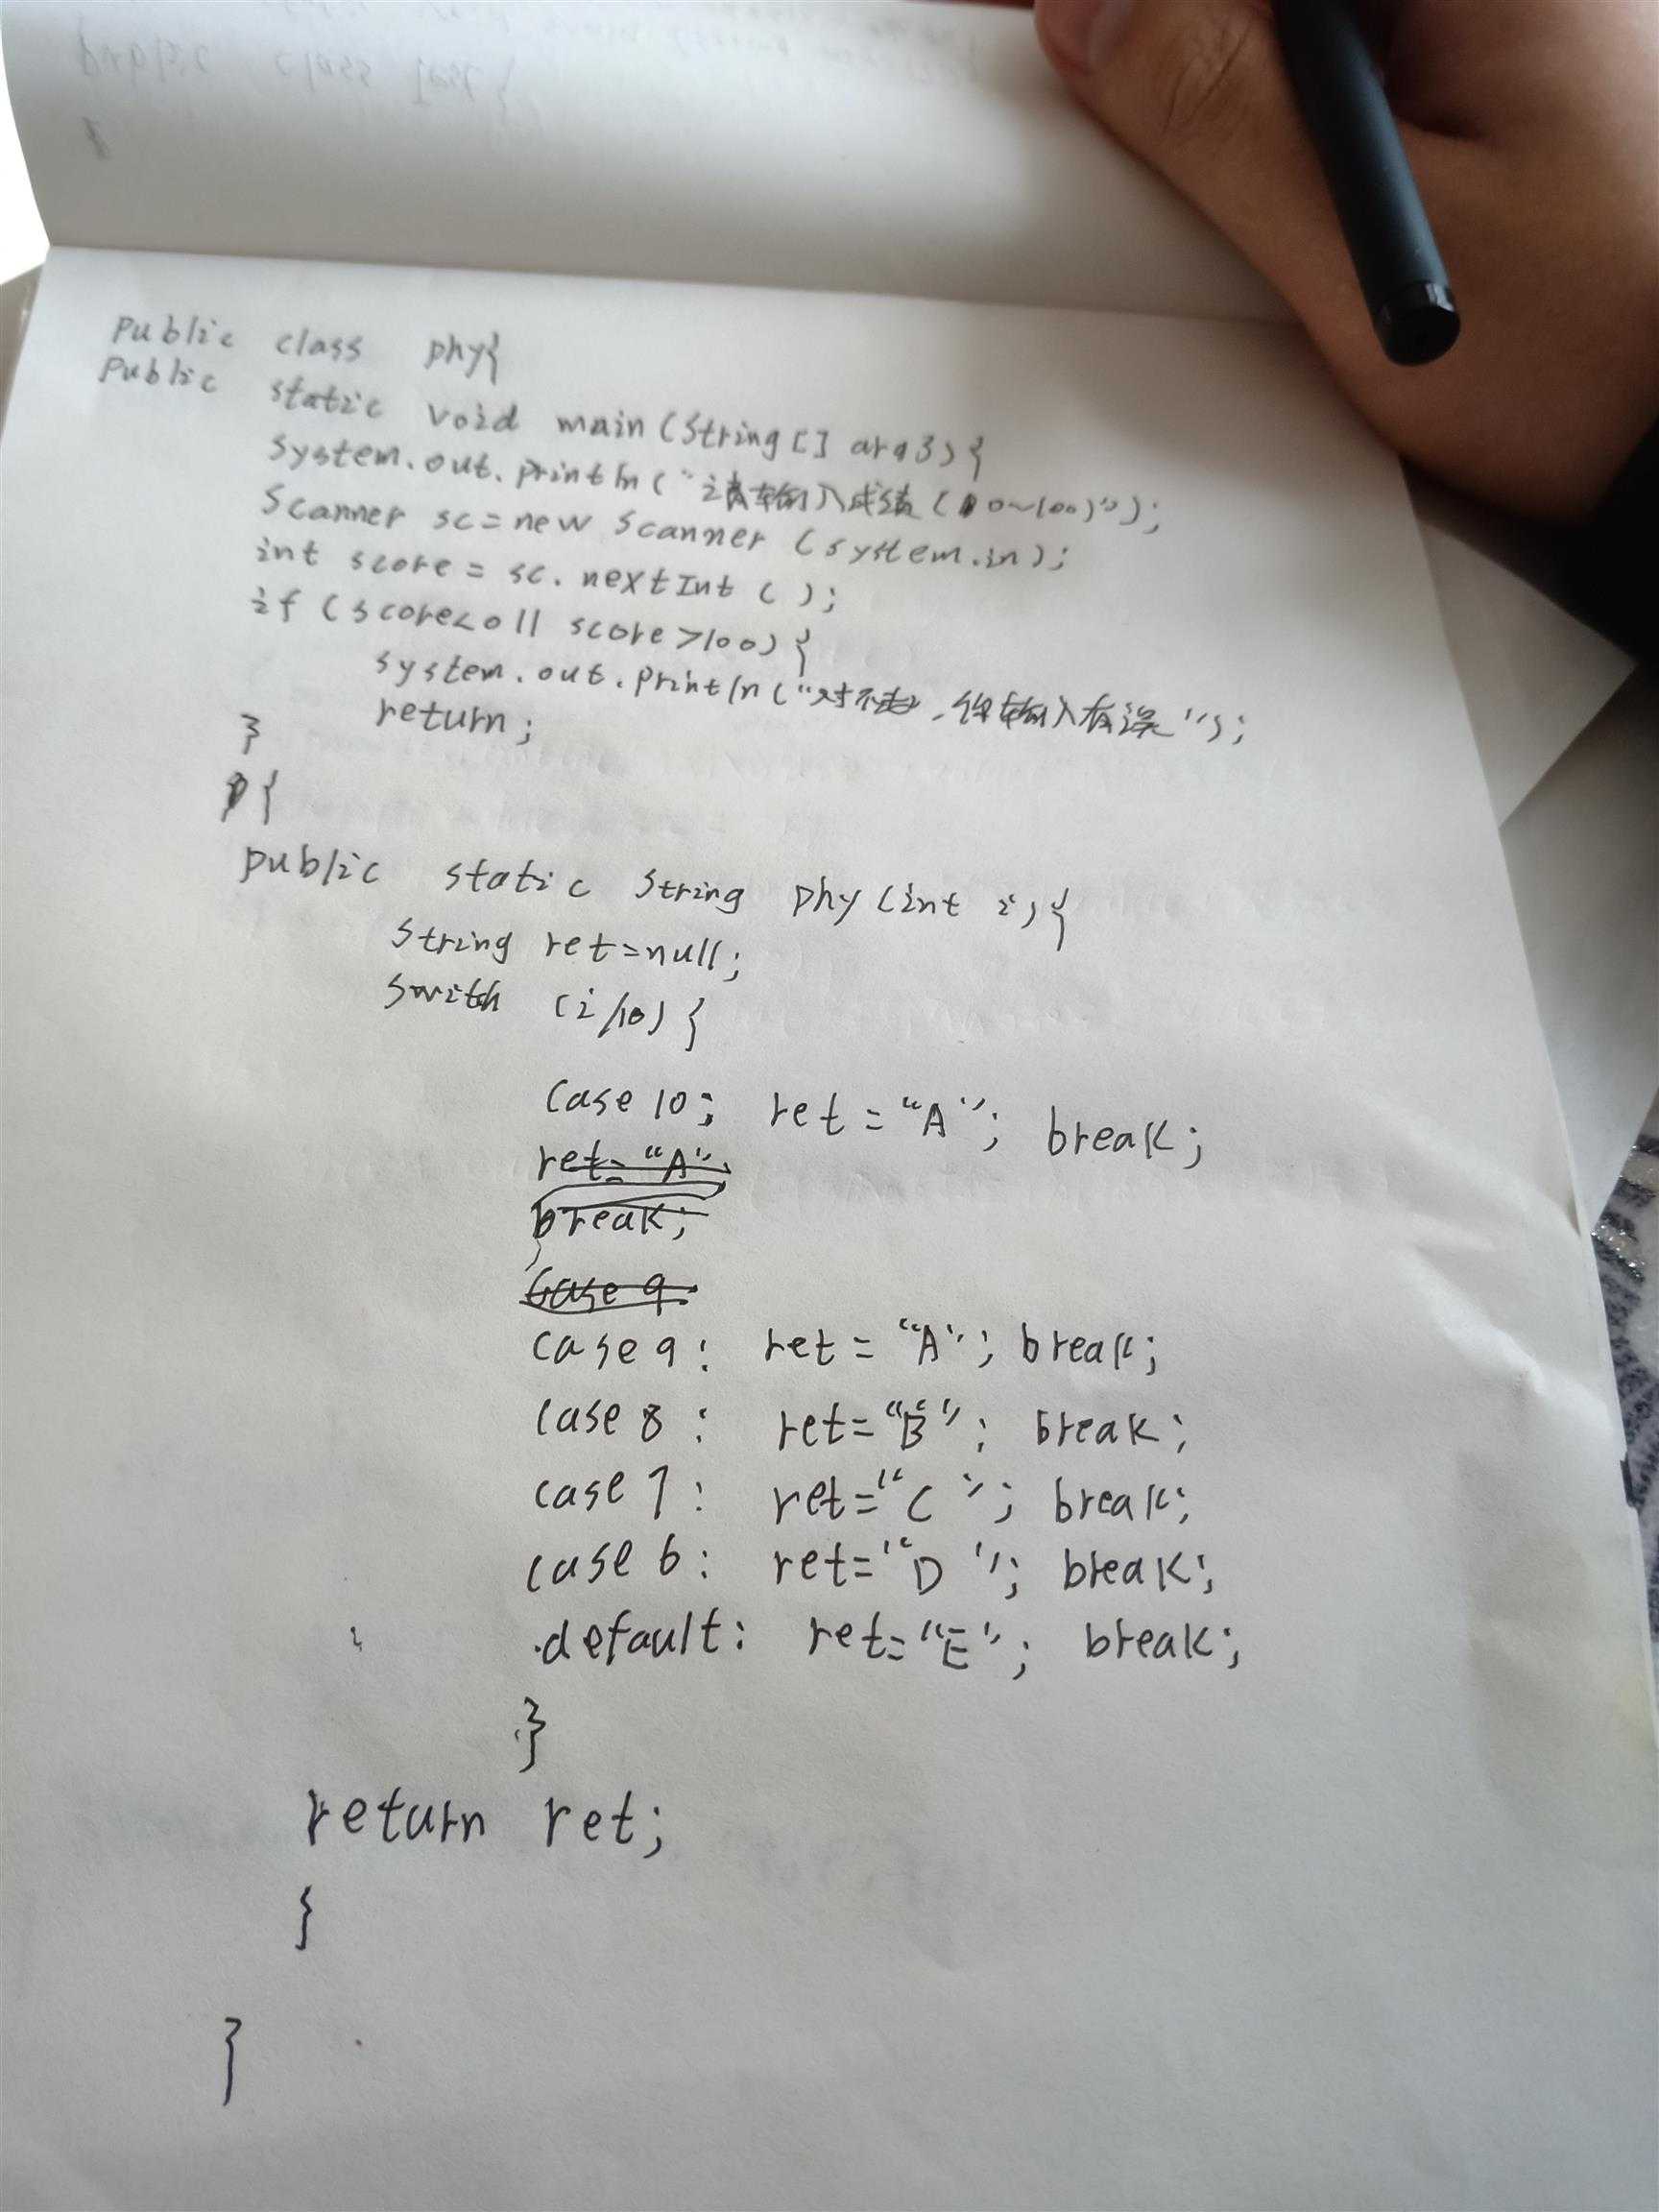 public class Test{
public class phy{
public static void main (String [] arg3) {
system.out.println ("请输入成绩 (0~100)");
Scanner sc = new Scanner (system.in);
int score = sc. nextInt ( );
if (score<0 || score >100) {
system.out.println ("对不起，你输入有误");
return;
}
{
public static string phy (int i) {
string ret=null;
switch (i/10) {
case 10; ret = "A"; break;
ret= "A"
break;
case 9
case 9: ret = "A"; break;
case 8 : ret="B"; break;
case 7: ret="C"; break;
case 6: ret="D"; break;
default: ret="E"; break;
}
return ret;
}
}